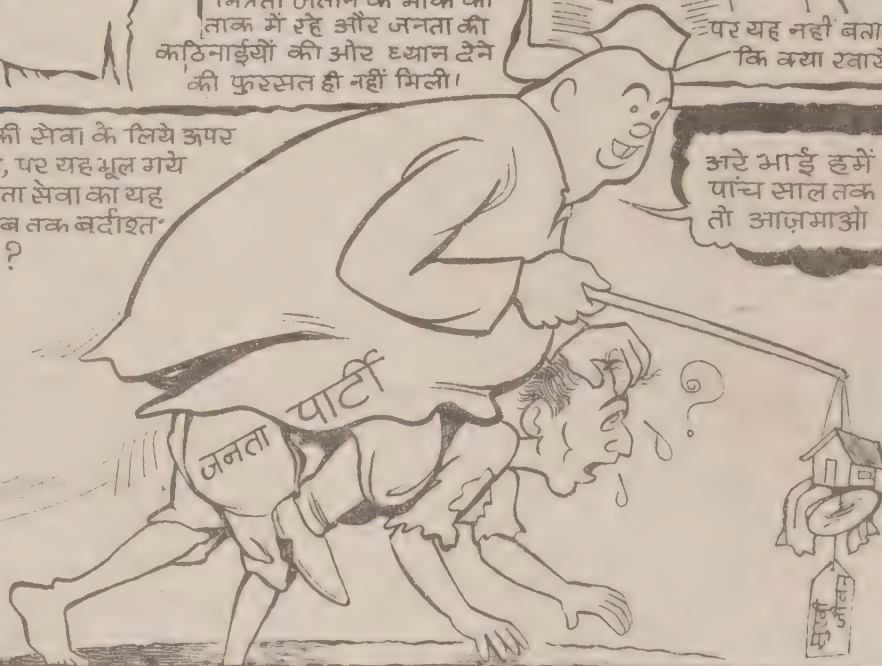 ताक में रहे और जनता की
कठिनाईयों की ओर ध्यान देने
की फुरसत ही नहीं मिली।
पर यह नहीं बता
कि क्या
की सेवा के लिये ऊपर
, पर यह भूल गये
ता सेवा का यह
ब तक बर्दाश्त
?
अरे भाई हमें
पांच साल तक
तो आज़माओ
जनता पार्टी
सुखी
जीवन